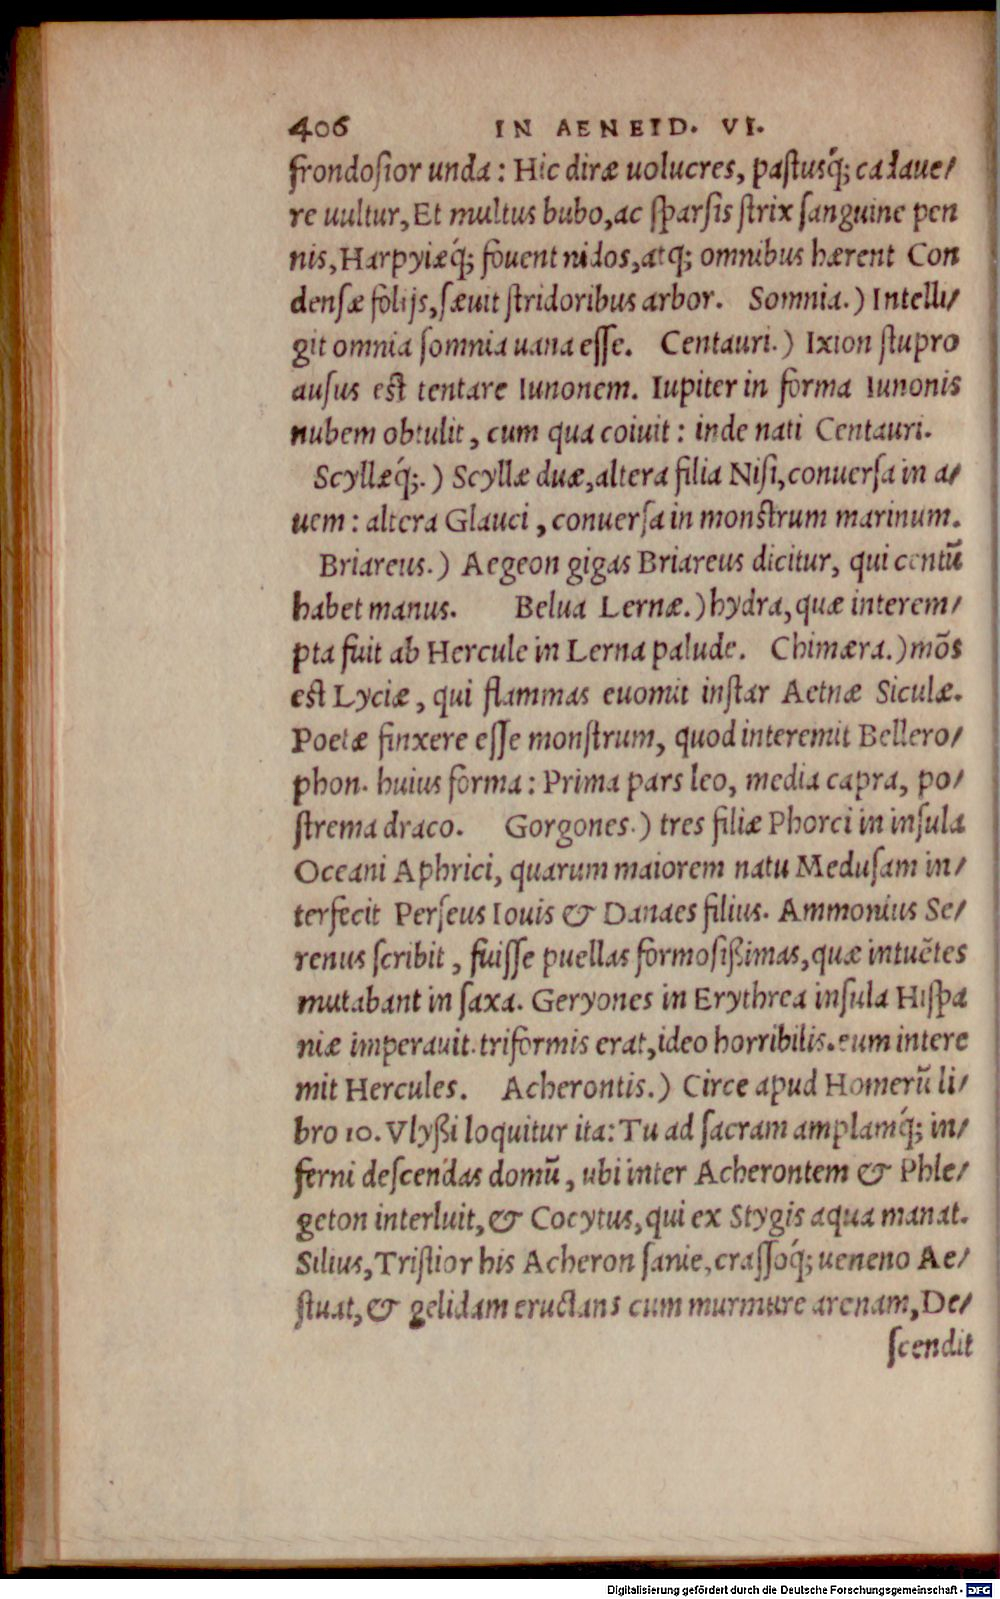 406 IN AENEID. VI.
frondoſior unda: Hic diræ uolucres, paſtusq́; cadaue/
re uultur, Et multus bubo, ac ſparſis ſtrix ſanguine pen
nis, Harpyiæq́; fouent nidos, atq; omnibus hærent Con
denſæ folijs, ſæuit ſtridoribus arbor. Somnia.) Intelli/
git omnia ſomnia uana eſſe. Centauri.) Ixion ſtupro
auſus eſt tentare Iunonem. Iupiter in forma Iunonis
nubem obtulit, cum qua coiuit: inde nati Centauri.
Scyllæq́;.) Scyllæ duæ, altera filia Niſi, conuerſa in a/
uem: altera Glauci, conuerſa in monſtrum marinum.
Briareus.) Aegeon gigas Briareus dicitur, qui centũ
habet manus. Belua Lernæ.) hydra, quæ interem/
pta fuit ab Hercule in Lerna palude. Chimæra.) mõs
eſt Lyciæ, qui flammas euomit inſtar Aetnæ Siculæ.
Poetæ finxere eſſe monſtrum, quod interemit Bellero/
phon. huius forma: Prima pars leo, media capra, po/
ſtrema draco. Gorgones.) tres filiæ Phorci in inſula
Oceani Aphrici, quarum maiorem natu Meduſam in/
terfecit Perſeus Iouis & Danaes filius. Ammonius Se/
renus ſcribit, fuiſſe puellas formoſißimas, quæ intuẽtes
mutabant in ſaxa. Geryones in Erythrea inſula Hiſpa
niæ imperauit. triformis erat, ideo horribilis. eum intere
mit Hercules. Acherontis.) Circe apud Homerũ li/
bro 10. Vlyßi loquitur ita: Tu ad ſacram amplamq́; in/
ferni deſcendas domũ, ubi inter Acherontem & Phle/
geton interluit, & Cocytus, qui ex Stygis aqua manat.
Silius, Triſtior his Acheron ſanie, craſſoq́; ueneno Ae/
ſtuat, & gelidam eructans cum murmure arenam, De/
ſcendit
Digitalisierung gefördert durch die Deutsche Forschungsgemeinschaft - DFG